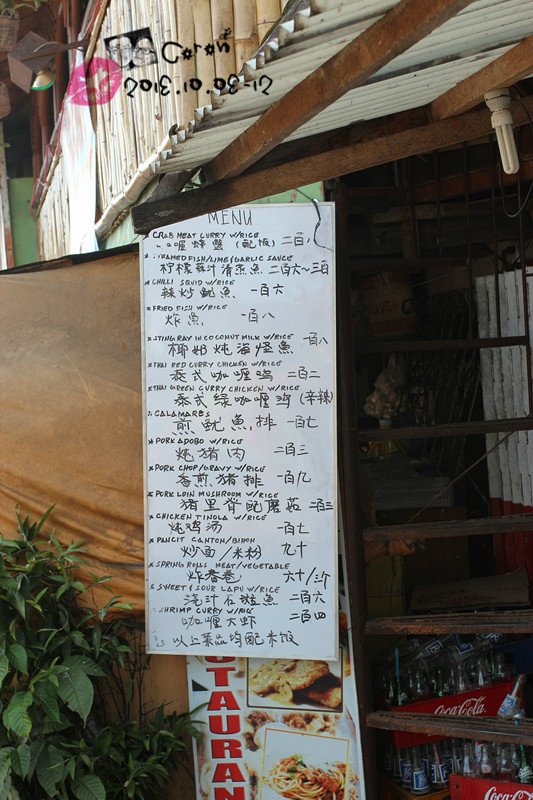 Caron
2013.10.08-12
MENU
* CRAB MEAT CURRY W/RICE
咖喱蟳蟹 (配饭) 二百八
STEAMED FISH/LIME/GARLIC SAUCE
柠檬蒜汁清蒸魚 二百六~三百
* CHILLI SQUID W/RICE
辣炒魷魚 一百六
* FRIED FISH W/RICE
炸魚 一百八
* STINGRAY IN COCONUT MILK W/RICE 一百八
椰奶炖海怪魚
* THAI RED CURRY CHICKEN W/RICE
泰式咖喱鸡 二百二
* THAI GREEN CURRY CHICKEN W/RICE
泰式绿咖喱鸡 (辛辣)
CALAMARES
煎魷魚排 一百七
* PORK ADOBO W/RICE
炖猪肉 二百三
* PORK CHOP/GRAVY W/RICE
香煎猪排 一百九
* PORK LOIN MUSHROOM W/RICE
猪里脊配蘑菇 二百三
* CHICKEN TINOLA W/RICE
炖鸡汤 一百七
* PANCIT CANTON/BIHON
炒面/米粉 九十
* SPRING ROLLS MEAT/VEGETABLE
炸春卷 六十/三个
* SWEET & SOUR LAPU W/RICE
浇汁石班魚 二百六
SHRIMP CURRY W/RICE
咖喱大虾 二百四
以上菜品均配米饭
TAURAN
Coca-Cola
Coca-Co